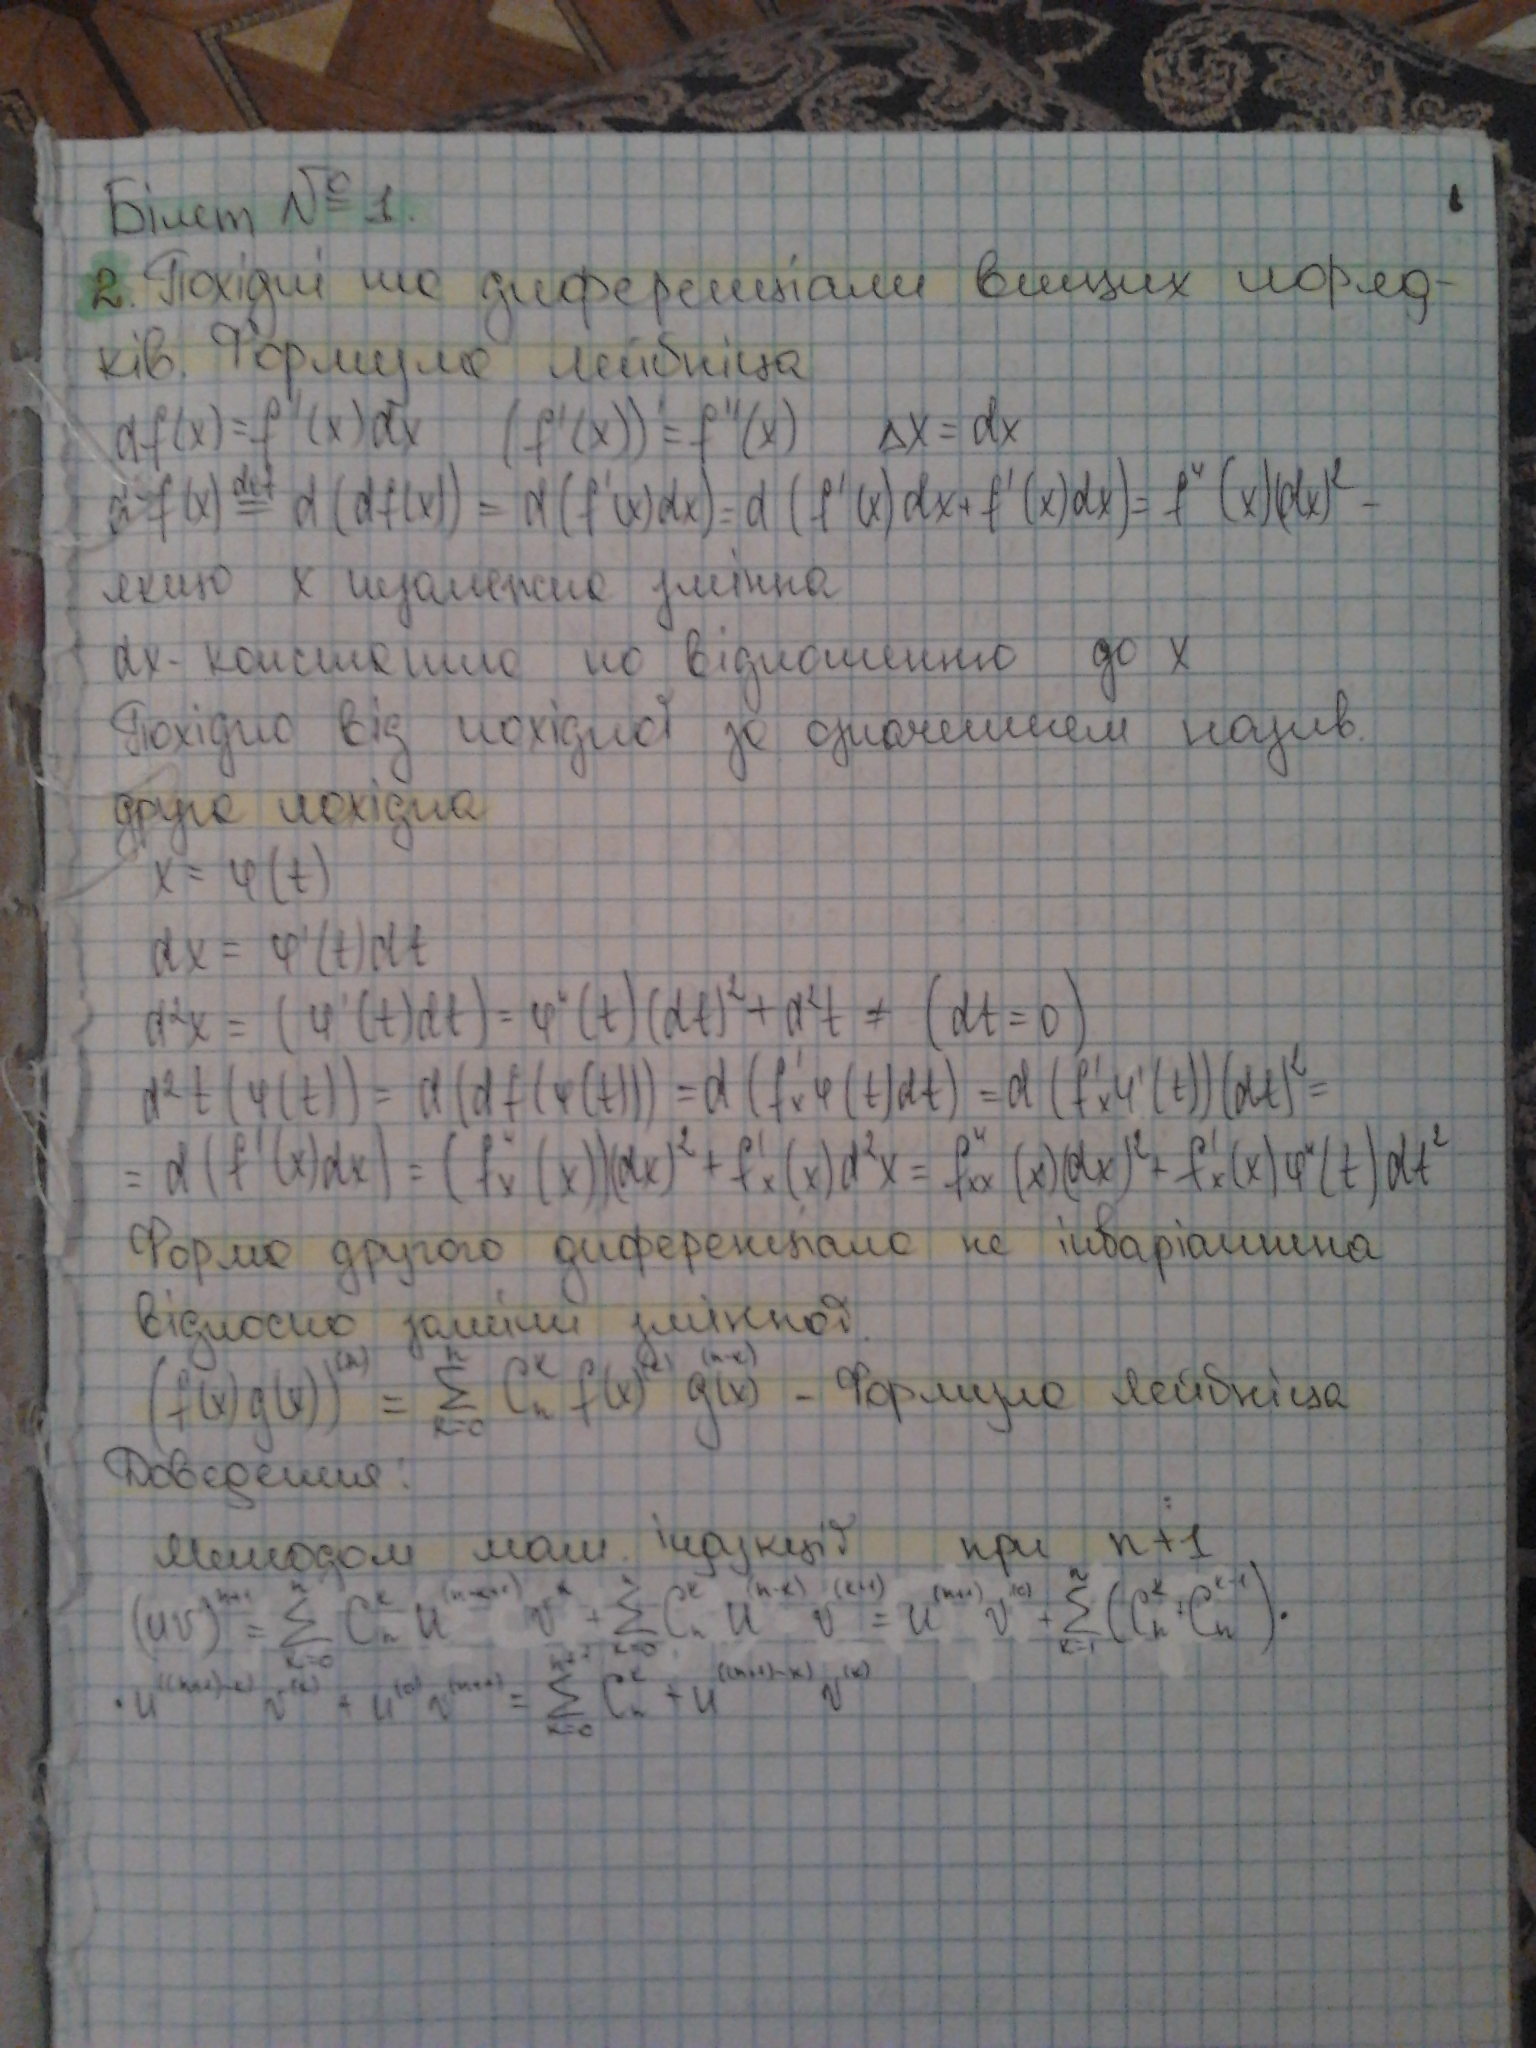 Білет № 1.
2. Похідні та диференціали вищих поряд-
ків. Формула Лейбніца
df(x) = f'(x)dx (f'(x))' = f''(x) Δx = dx
d²f(x) def= d(df(x)) = d(f'(x)dx) = d(f'(x)dx + f'(x)dx) = f''(x)(dx)² –
якщо x незалежна змінна
dx - константа по відношенню до x
Похідна від похідної за означенням назив.
друга похідна
x = φ(t)
dx = φ'(t)dt
d²x = (φ'(t)dt) = φ''(t)(dt)² + d²t ≠ (dt = 0)
d²t(φ(t)) = d(df(φ(t))) = d(f'ₓφ(t)dt) = d(f'ₓφ'(t))(dt)² =
= d(f'(x)dx) = (f''ₓ(x))(dx)² + f'ₓ(x)d²x = f''ₓₓ(x)(dx)² + f'ₓ(x)φ''(t)dt²
Форма другого диференціала не інваріантна
відносно заміни змінної.
(f(x)g(x))⁽ⁿ⁾ = Σₖ₌₀ⁿ Cₙᵏ f(x)⁽ᵏ⁾ g(x)⁽ⁿ⁻ᵏ⁾ – Формула Лейбніца
Доведення:
Методом мат. індукції при n+1
(uv)ⁿ⁺¹ = Σₖ₌₀ⁿ Cₙᵏ u⁽ⁿ⁻ᵏ⁺¹⁾ vᵏ + Σₖ₌₀ⁿ Cₙᵏ u⁽ⁿ⁻ᵏ⁾ v⁽ᵏ⁺¹⁾ = u⁽ⁿ⁺¹⁾ v⁽⁰⁾ + Σₖ₌₁ⁿ (Cₙᵏ + Cₙᵏ⁻¹) ·
· u⁽⁽ⁿ⁺¹⁾⁻ᵏ⁾ v⁽ᵏ⁾ + u⁽⁰⁾ v⁽ⁿ⁺¹⁾ = Σₖ₌₀ⁿ⁺¹ Cₙᵏ + u⁽⁽ⁿ⁺¹⁾⁻ᵏ⁾ v⁽ᵏ⁾